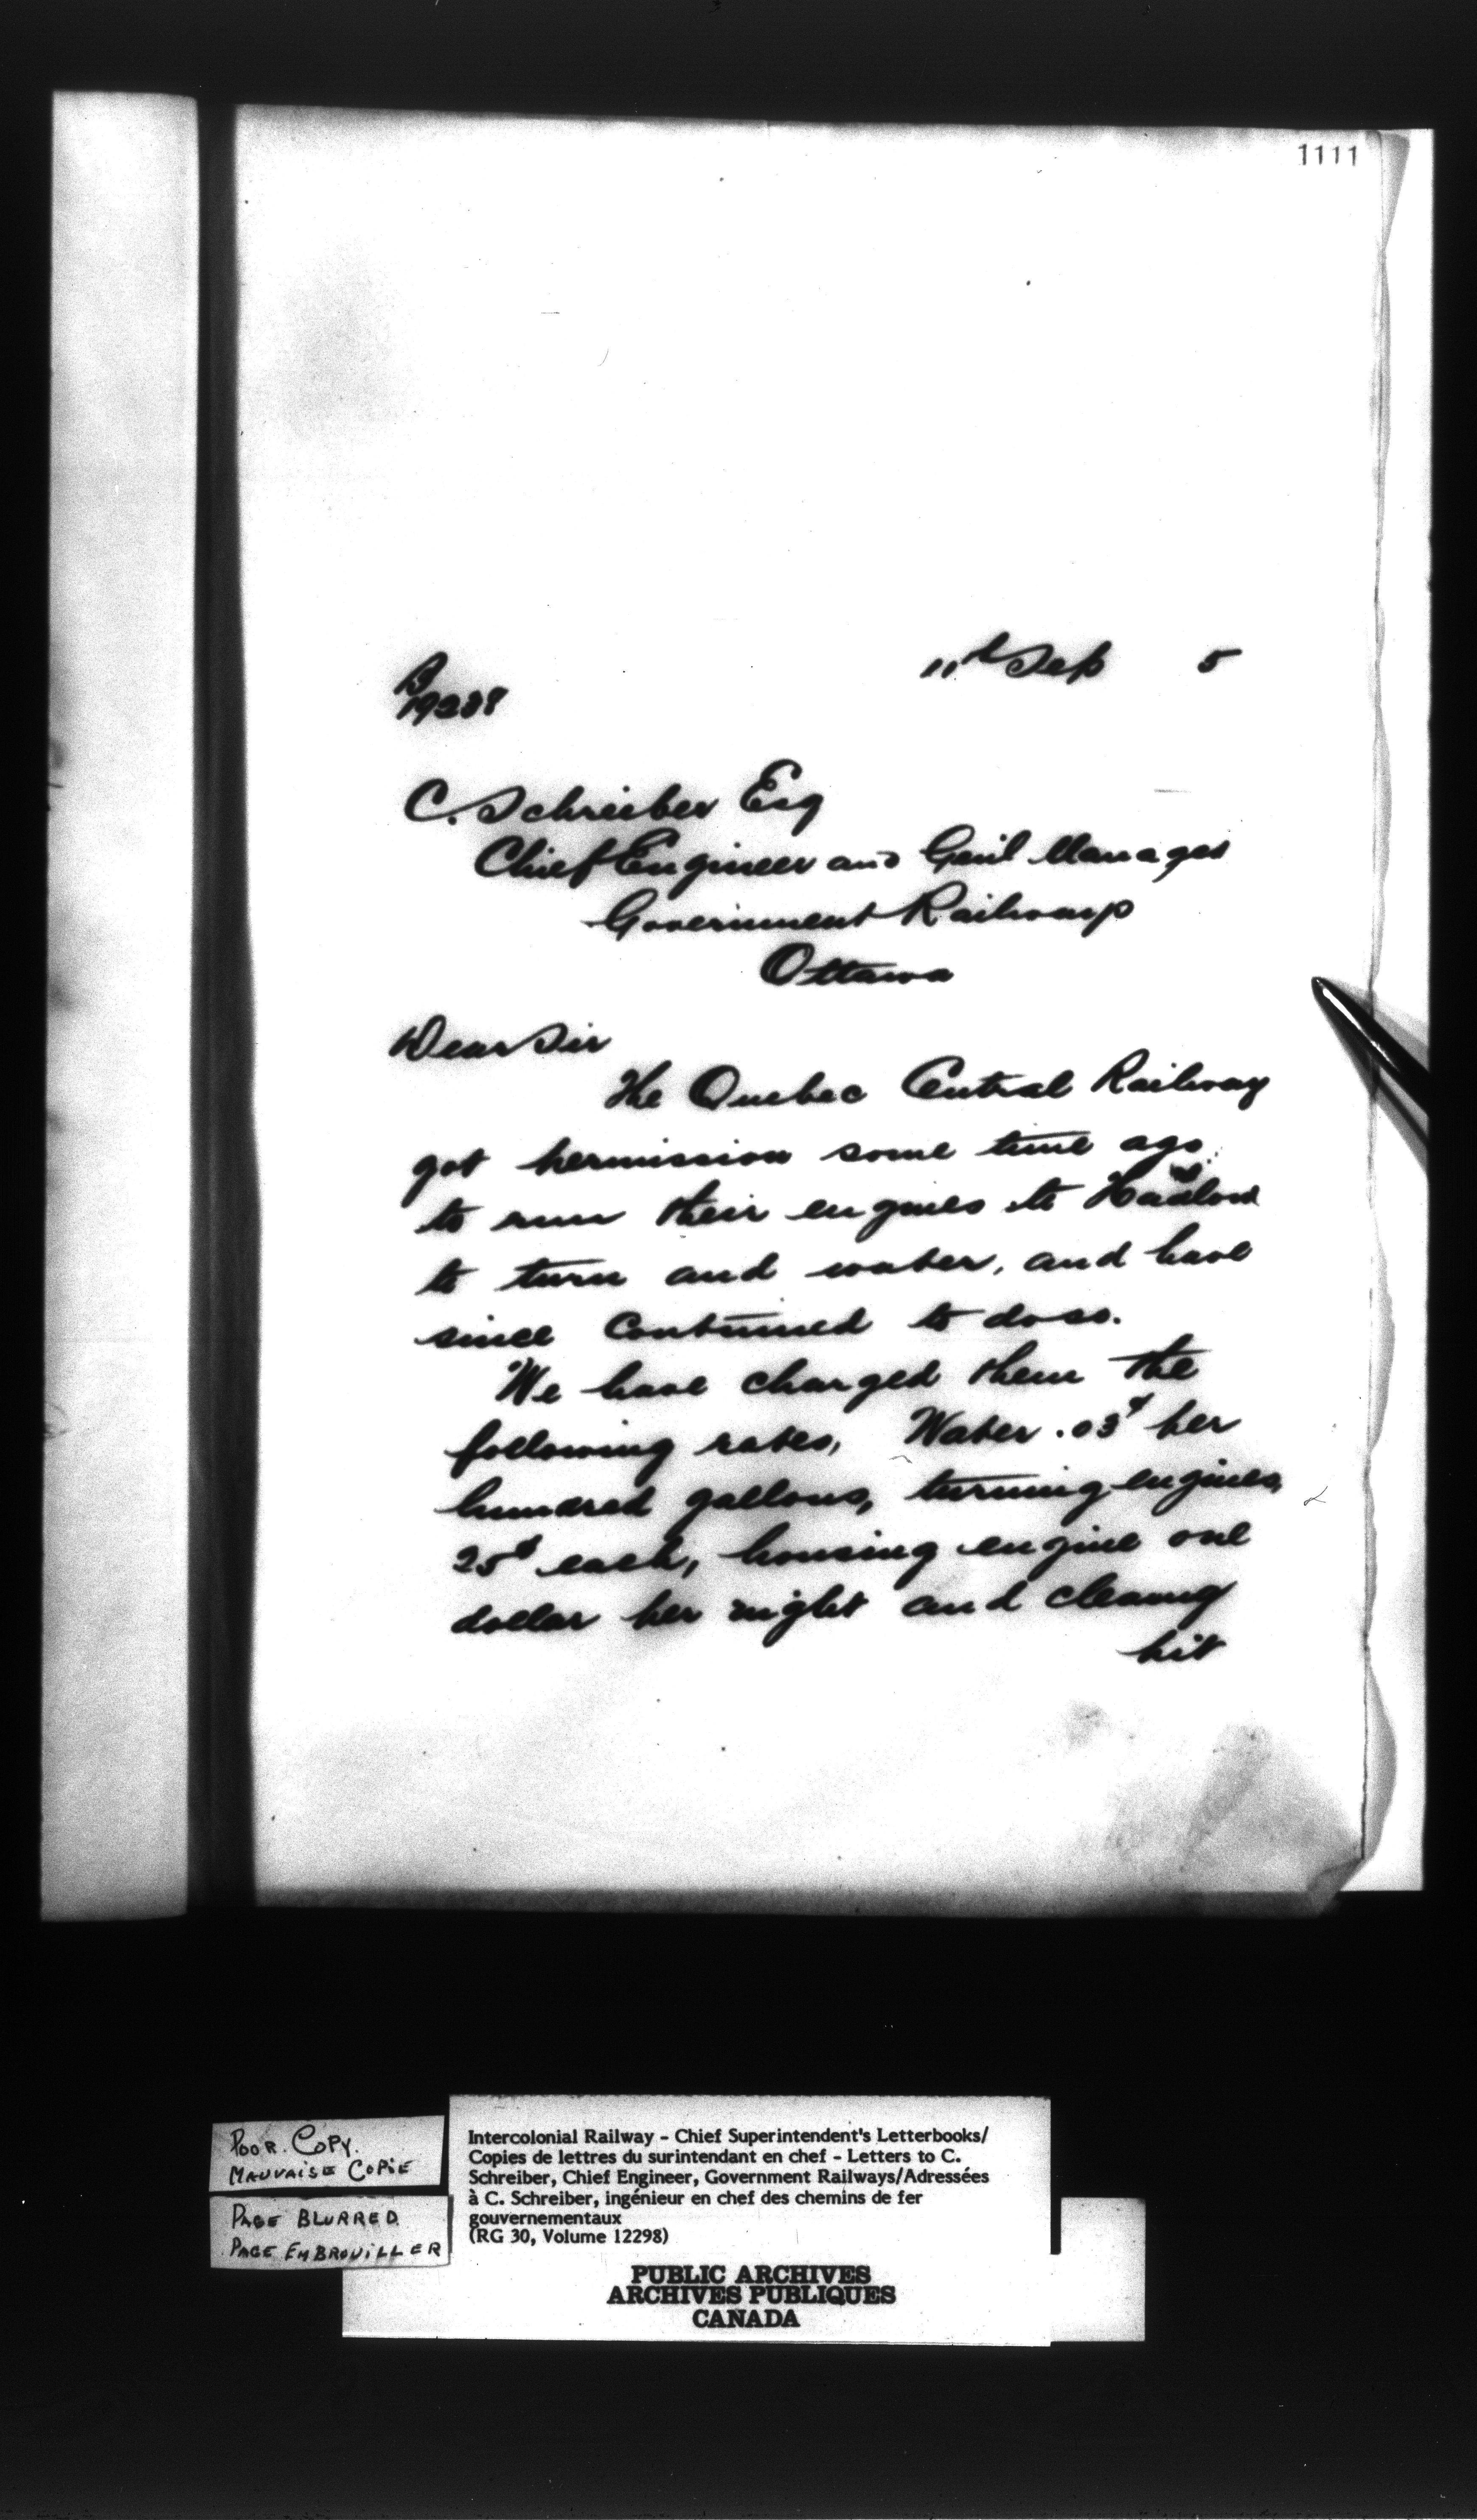 1111
11th Sep 5
B
19238
C. Schreiber Esq
Chief Engineer and Genl Manager
Government Railways
Ottawa
Dear Sir
The Quebec Central Railway
got permission some time ago
to run their engines to Hadlow
to turn and water, and have
since continued to do so.
We have charged them the
following rates, Water .03¢ per
hundred gallons, turning engines,
25¢ each, housing engine one
dollar per night and cleaning
pit
POOR COPY.
MAUVAISE COPIE
PAGE BLURRED
PAGE EMBROUILLER
Intercolonial Railway - Chief Superintendent's Letterbooks/
Copies de lettres du surintendant en chef - Letters to C.
Schreiber, Chief Engineer, Government Railways/Adressées
à C. Schreiber, ingénieur en chef des chemins de fer
gouvernementaux
(RG 30, Volume 12298)
PUBLIC ARCHIVES
ARCHIVES PUBLIQUES
CANADA